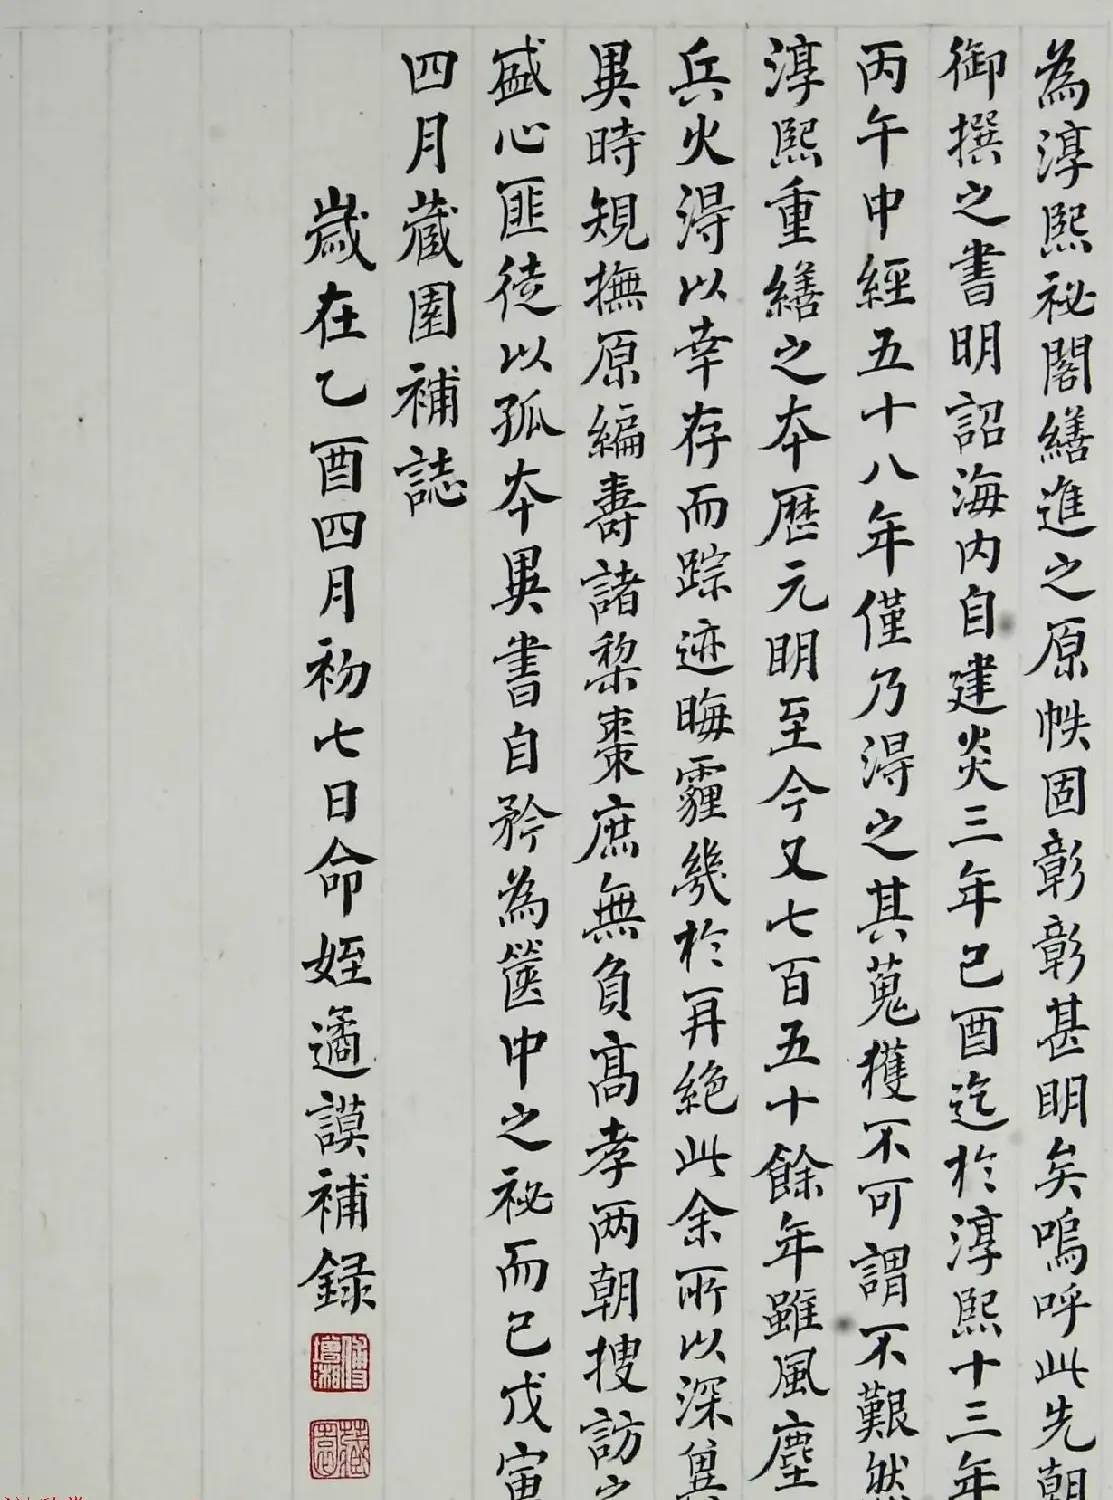 為淳熙祕閣繕進之原帙固彰彰甚明矣嗚呼此先朝
御撰之書明詔海内自建炎三年己酉迄於淳熙十三年
丙午中經五十八年僅乃淂之其蒐獲不可謂不艱然
淳熙重繕之本歷元明至今又七百五十餘年雖風塵
兵火淂以幸存而踪迹晦霾幾於再絶此余所以深冀
異時規撫原編壽諸棃棗庶無負髙孝两朝搜訪之
盛心匪徒以孤本異書自矜為篋中之祕而已戊寅
四月藏園補誌
歲在乙酉四月初七日命姪遹謨補録
傅增湘
藏園